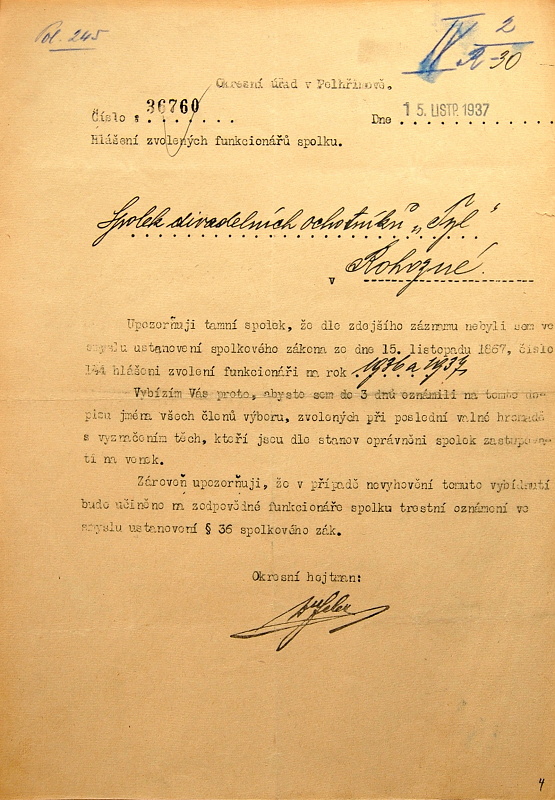 Pol. 245
IV 2
R-30
Okresní úřad v Pelhřimově.
Číslo : 36760
Dne 15. LISTP. 1937
Hlášení zvolených funkcionářů spolku.
Spolek divadelních ochotníků „Tyl“
v Rohozné.
Upozorňuji tamní spolek, že dle zdejšího záznamu nebyli sem ve
smyslu ustanovení spolkového zákona ze dne 15. listopadu 1867, číslo
144 hlášeni zvolení funkcionáři na rok 1936 a 1937.
Vybízím Vás proto, abyste sem do 3 dnů oznámili na tomto do-
pisu jména všech členů výboru, zvolených při poslední valné hromadě
s vyznačením těch, kteří jsou dle stanov oprávněni spolek zastupova-
ti na venek.
Zároveň upozorňuji, že v případě nevyhovění tomuto vybídnutí
bude učiněno na zodpovědné funkcionáře spolku trestní oznámení ve
smyslu ustanovení § 36 spolkového zák.
Okresní hejtman:
4